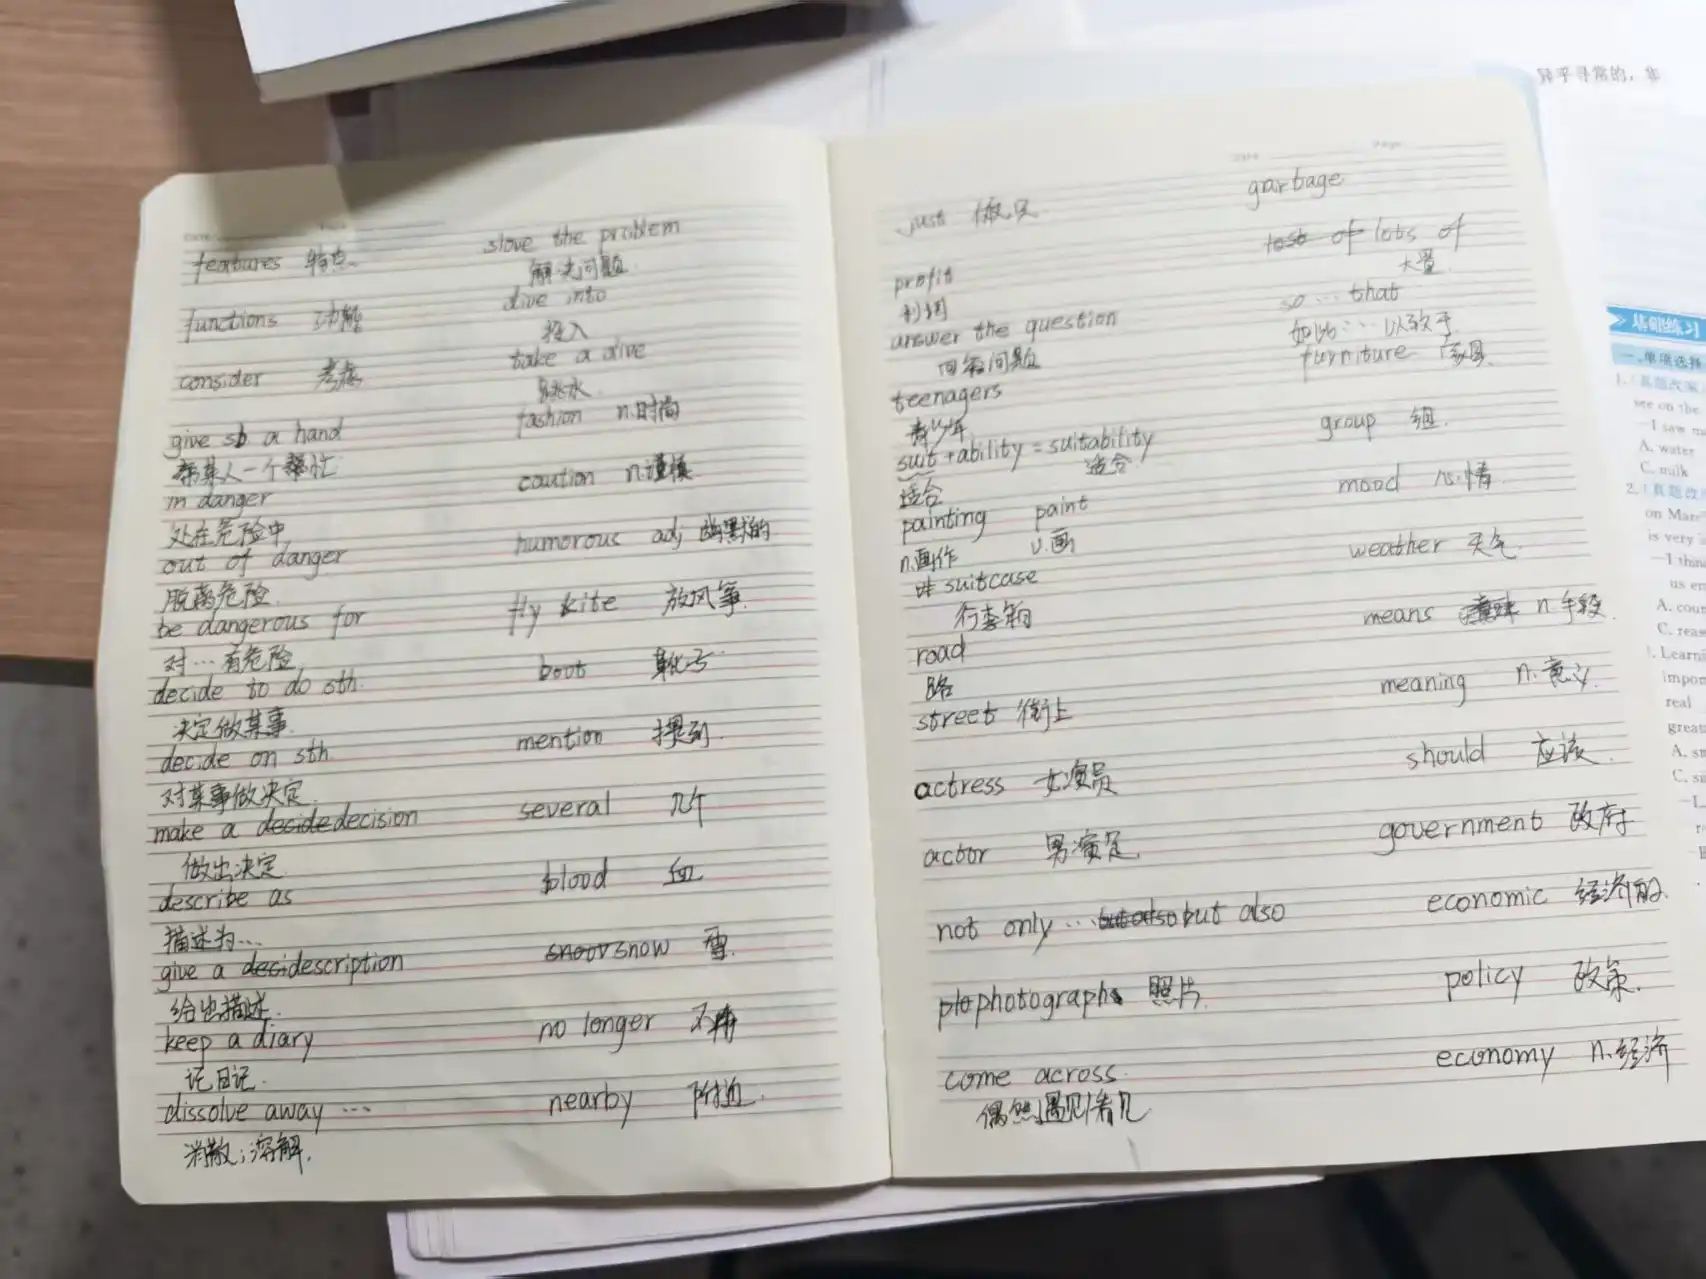 features 特点
functions 功能
consider 考虑
give sb a hand
帮某人一个帮忙
in danger
处在危险中,
out of danger
脱离危险.
be dangerous for
对…有危险,
decide to do sth.
决定做某事.
decide on sth.
对某事做决定.
make a decide decision
做出决定.
describe as
描述为…
give a deci description
给出描述.
keep a diary
记日记.
dissolve away …
消散;溶解.
slove the problem
解决问题.
dive into
投入
take a dive
跳水.
fashion n.时尚
caution n.谨慎.
humorous adj 幽默的
fly kite 放风筝.
boot 靴子
mention 提到.
several 几个
blood 血
snoov snow 雪.
no longer 不再
nearby 附近.
just
profit
利润
answer the question
回答问题
teenagers
青少年
suit + ability = suitability
适合 适合
painting paint
n.画作 v.画
suitcase
行李箱
road
路
street 街上
actress 女演员
actor 男演员
not only … but also but also
pto photograph 照片.
come across.
偶然遇见/看见
garbage
lost of lots of
大量.
so … that
如此…以致于.
furniture 家具.
group 组.
mood 心情.
weather 天气.
means 意味 n.手段.
meaning n.意义.
should 应该.
government 政府
economic 经济的.
policy 政策.
economy n.经济
异乎寻常的, 非
基础练习
一、单项选择
see on the
A. water
C. milk
is very
us en